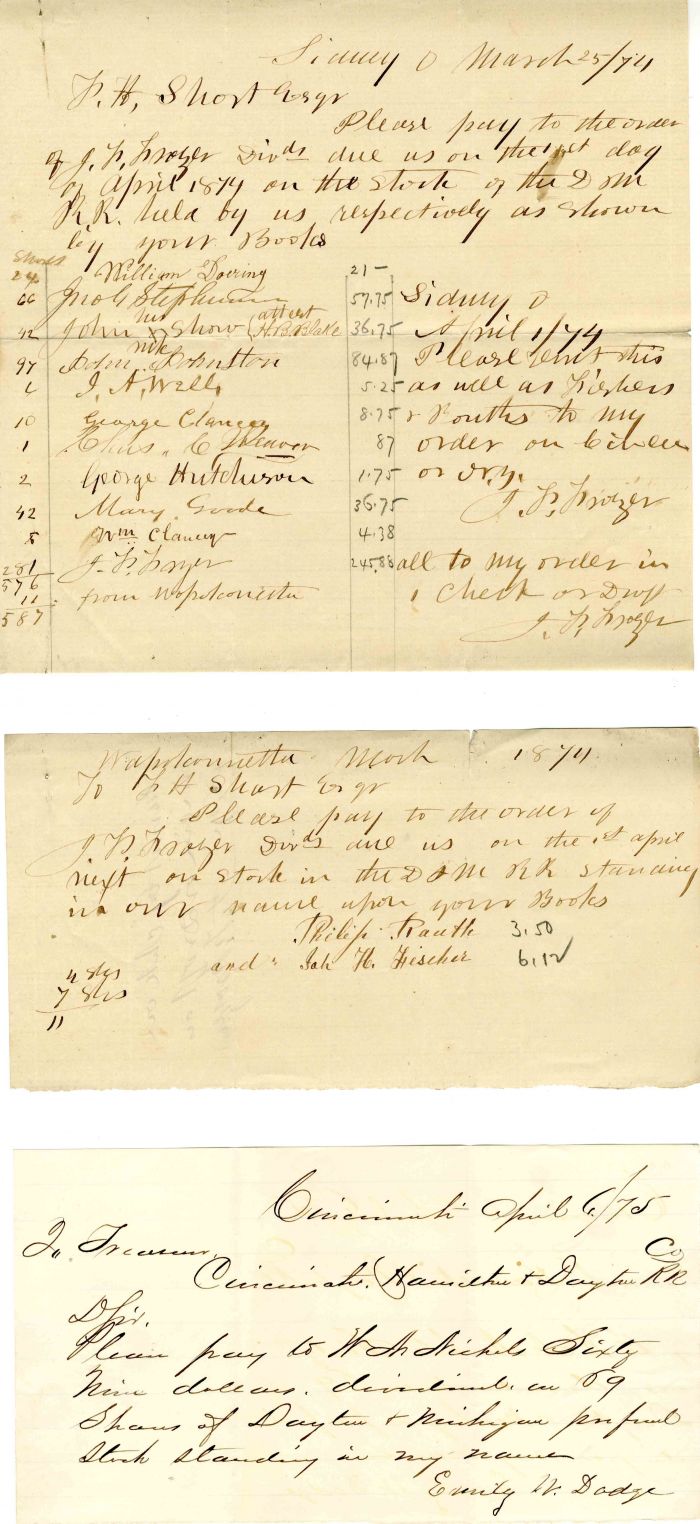 Sidney O March 25/74
F. H. Short Esqr
Please pay to the order
of J. F. Frazer Divds due us on the 1st day
of April 1874 on the Stock of the D & M
R.R. held by us respectively as shown
by your Books
Shares
24 William Doering 21 -
66 Jno G Stephenson 57.75
42 John his x mk Show (attest H. B. Blake 36.75
97 John Johnston 84.87
6 J. A. Wells 5.25
10 George Clancey 8.75
1 Chas. C Weaver 87
2 George Hutchison 1.75
42 Mary Goode 36.75
5 Wm Clancey 4.38
281 J. F. Frazer 245.88
576
11 from Wapokonetta
587
Sidney O
April 1/74
Please remit this
as well as Fischers
& Rauths to my
order on Cincin
or N.Y.
J. F. Frazer
all to my order in
1 Check or Draft
J. F. Frazer
Wapokonnetta March 1874
To F H Short Esqr
Please pay to the order of
J. F. Frazer Divds due us on the 1st april
next on Stock in the D & M RR standing
in our name upon your Books
Philip Rauth 3.50
and Joh H. Fischer 6.12
4 shs
7 shs
11
Cincinnati April 6/75
To Treasurer
Cincinnati, Hamilton & Dayton RR Co
D Sir.
Please pay to W M Nichols Sixty
Nine dollars. dividend. on 69
Shares of Dayton & Michigan preferred
Stock standing in my name
Emily W. Dodge